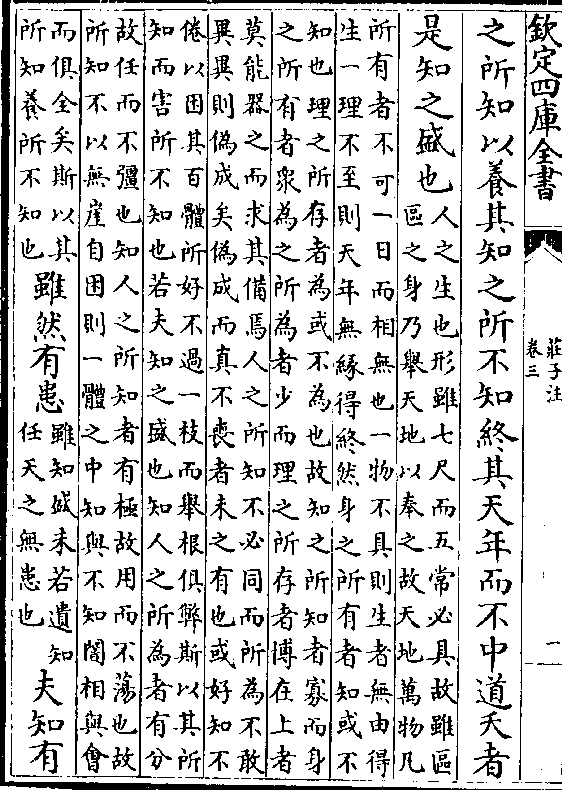 欽定四庫全書
莊子注
卷三
一
之所知以養其知之所不知終其天年而不中道夭者
是知之盛也人之生也形雖七尺而五常必具故雖區
區之身乃舉天地以奉之故天地萬物凡
所有者不可一日而相無也一物不具則生者無由得
生一理不至則天年無緣得終然身之所有者知或不
知也理之所存者為或不為也故知之所知者寡而身
之所有者衆為之所為者少而理之所存者博在上者
莫能器之而求其備焉人之所知不必同而所為不敢
異異則偽成矣偽成而真不喪者未之有也或好知不
倦以困其百體所好不過一枝而舉根俱弊斯以其所
知而害所不知也若夫知之盛也知人之所為者有分
故任而不彊也知人之所知者有極故用而不蕩也故
所知不以無崖自困則一體之中知與不知闇相與會
而俱全矣斯以其
所知養所不知也雖然有患雖知盛未若遺知
任天之無患也夫知有